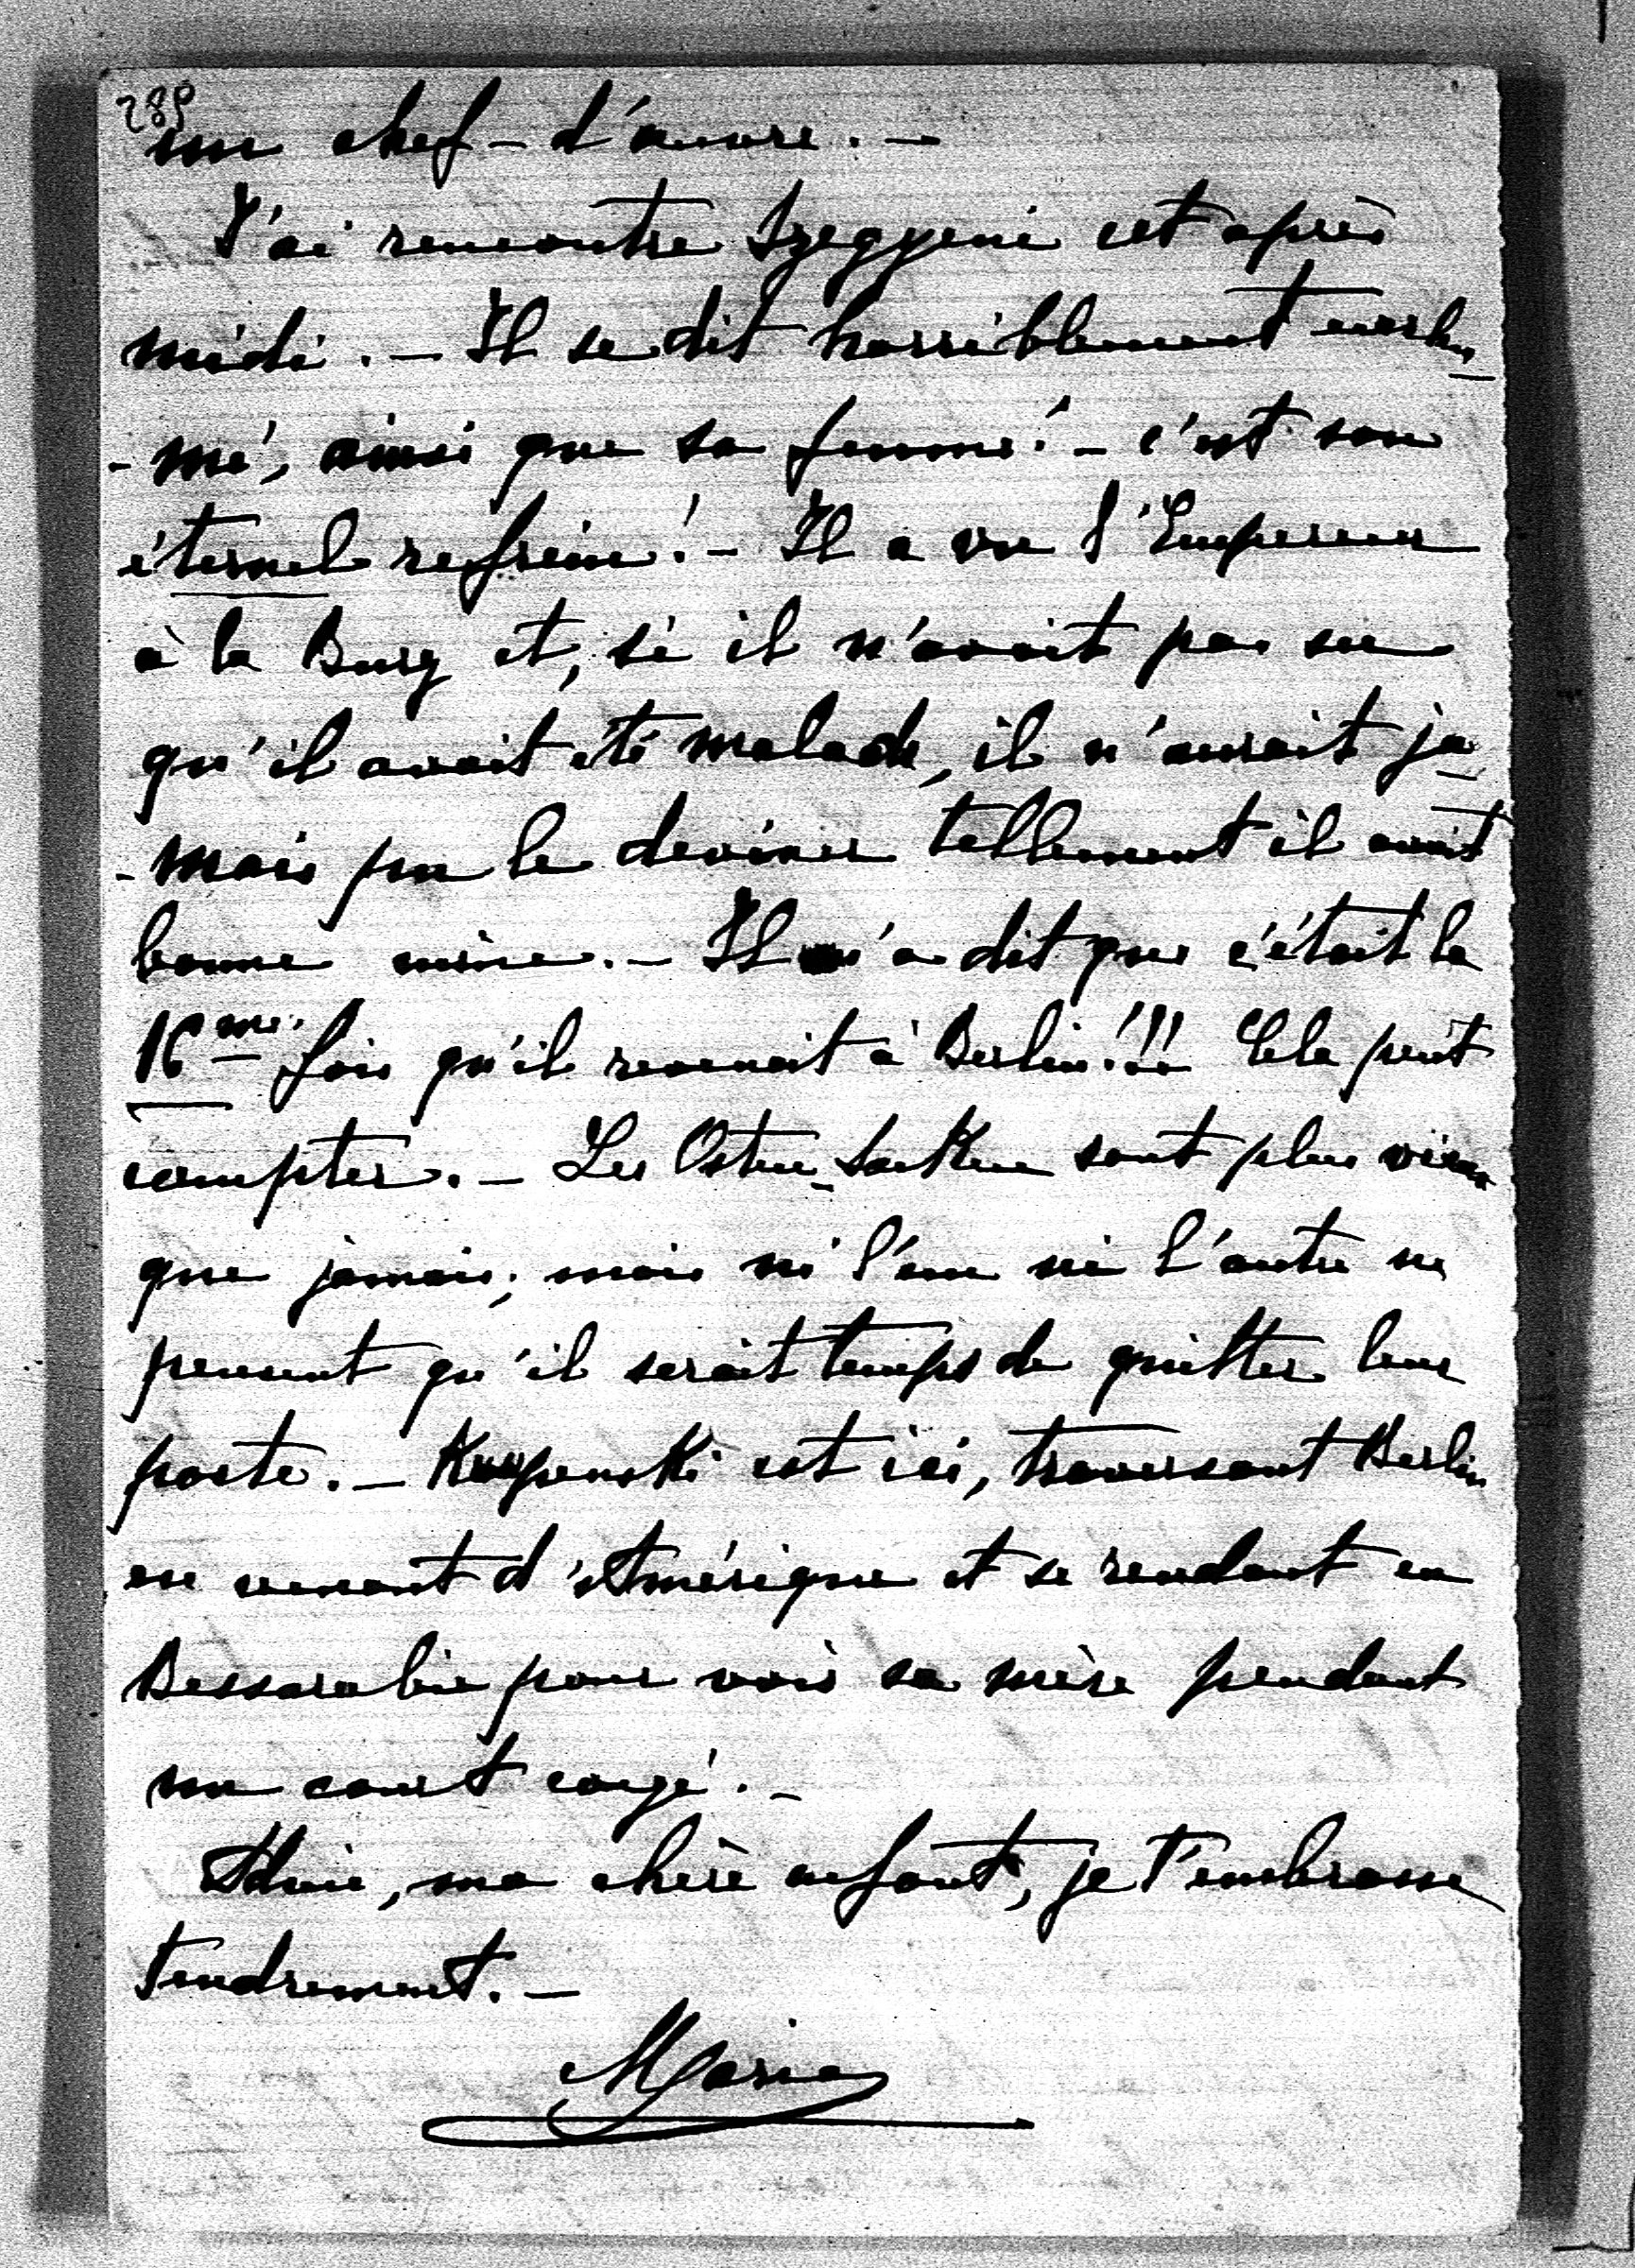 289
un chef-d'œuvre. —
J'ai rencontré Szegyeni cet après
midi. — Il se dit horriblement enrhu
-mé, ainsi que sa femme! — c'est son
éternel refrain! — Il a vu l'Empereur
à la Burg et, si il n'avait pas su
qu'il avait été malade, il n'aurait ja
-mais pu le deviner tellement il avait
bonne mine. — Il m'a dit que c'était la
16me. fois qu'il revenait à Berlin!!! Cela peut
compter. — Les Osten-Sacken sont plus vieux
que jamais; mais ni l'un ni l'autre ne
pensent qu'il serait temps de quitter leur
poste. — est ici, traversant Berlin
en venant d'Amérique et se rendant en
Bessarabie pour voir sa mère pendant
un court congé. —
Adieu, ma chère enfant, je t'embrasse
tendrement. —
Marie